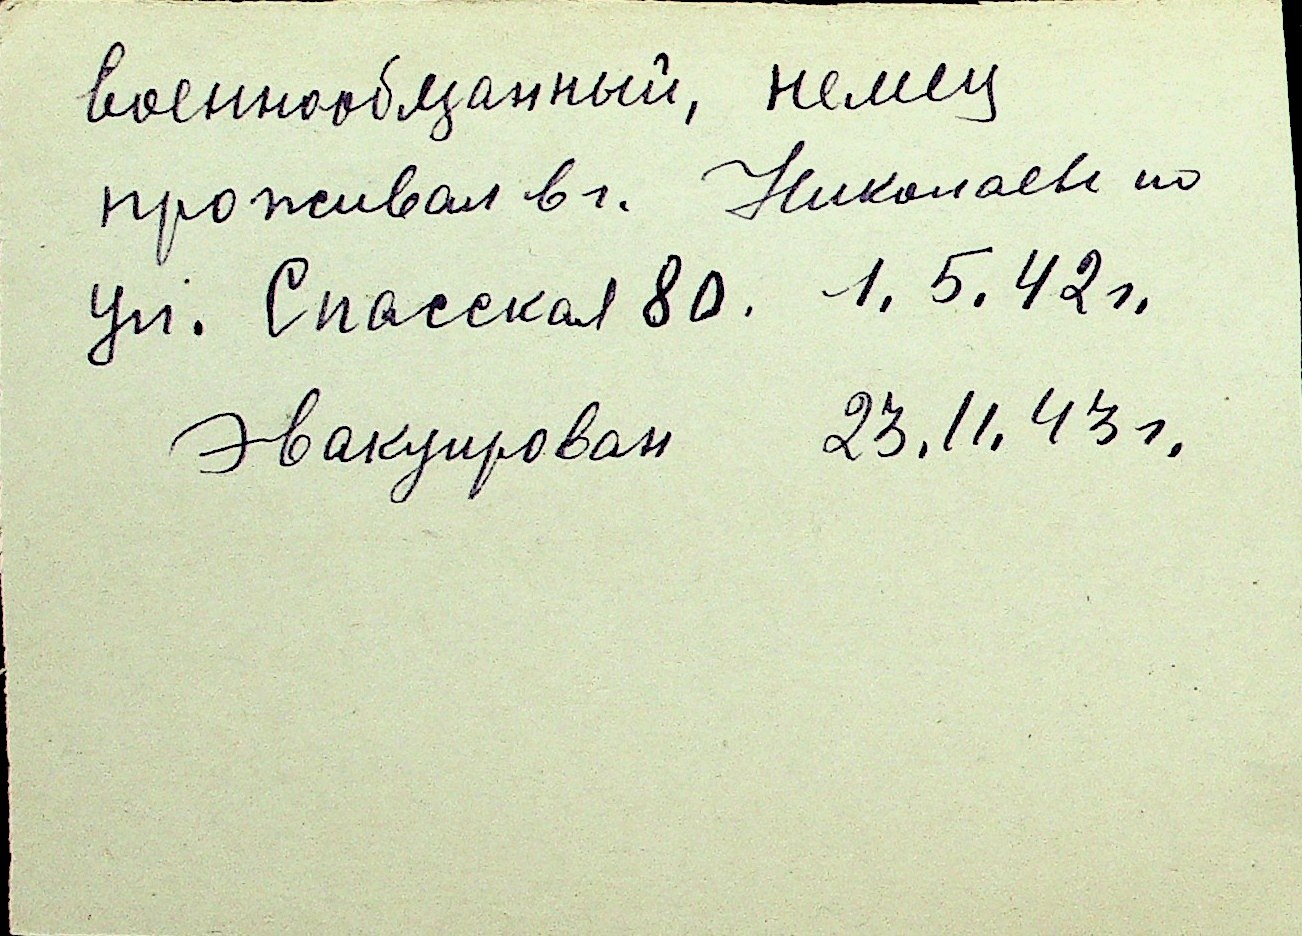 военнообязанный, немец
проживал в г. Николаеве по
ул. Спасская 80. 1.5.42 г.
Эвакуирован 23.11.43 г.